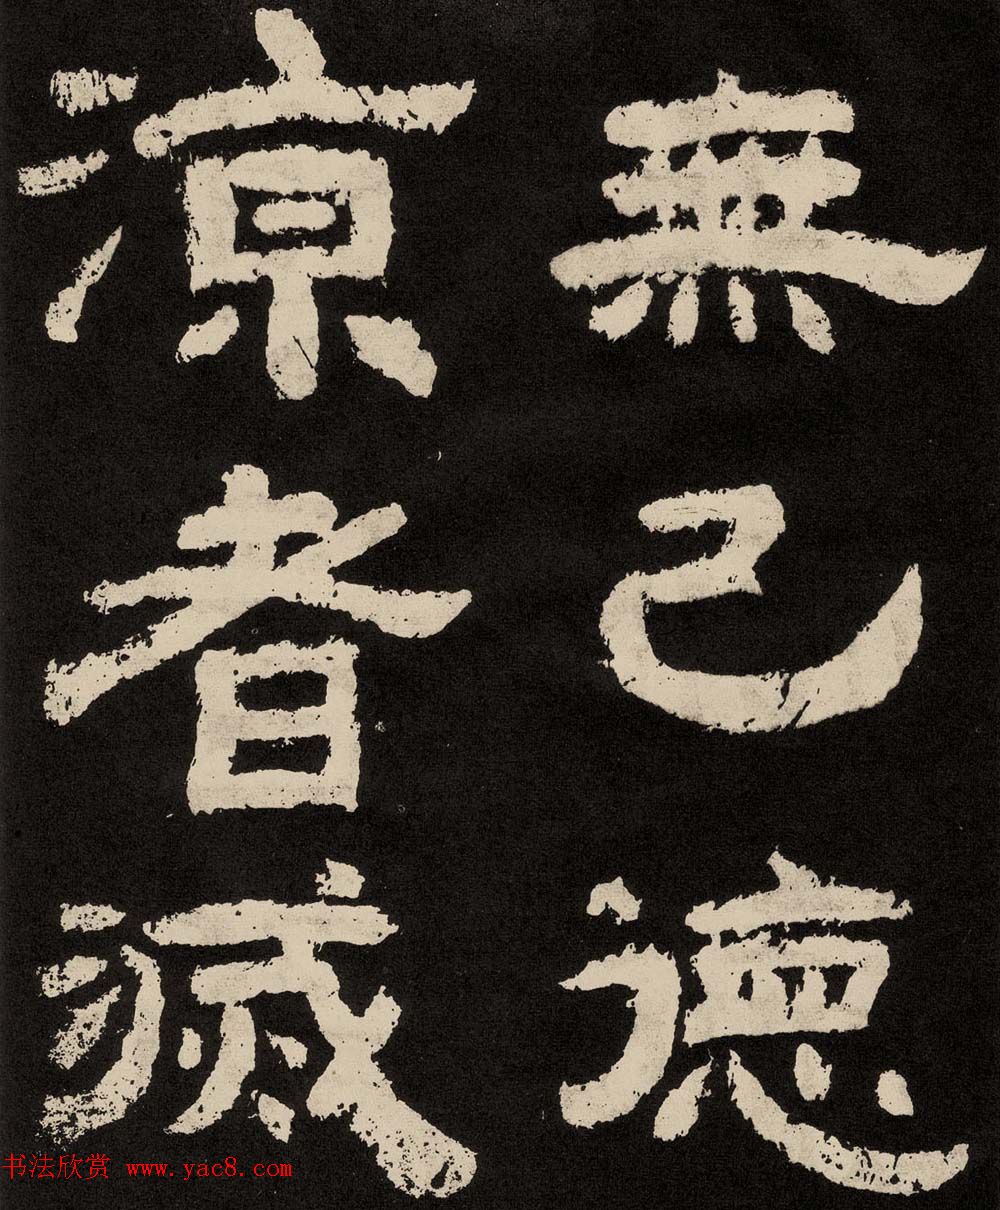 無已德
涼者滅
书法欣赏 www.yac8.com